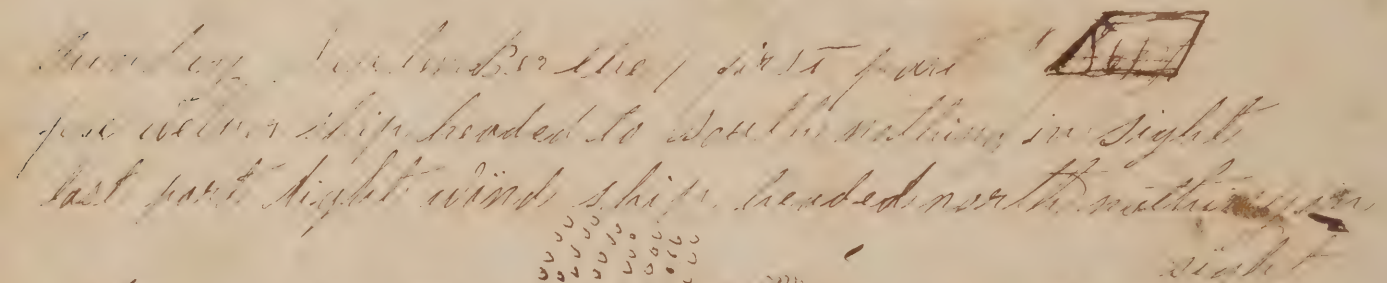 Sunday November the 1 first part
fine wether ship headed to south nothing in sight
last part light winds ship headed north nothing in
sight